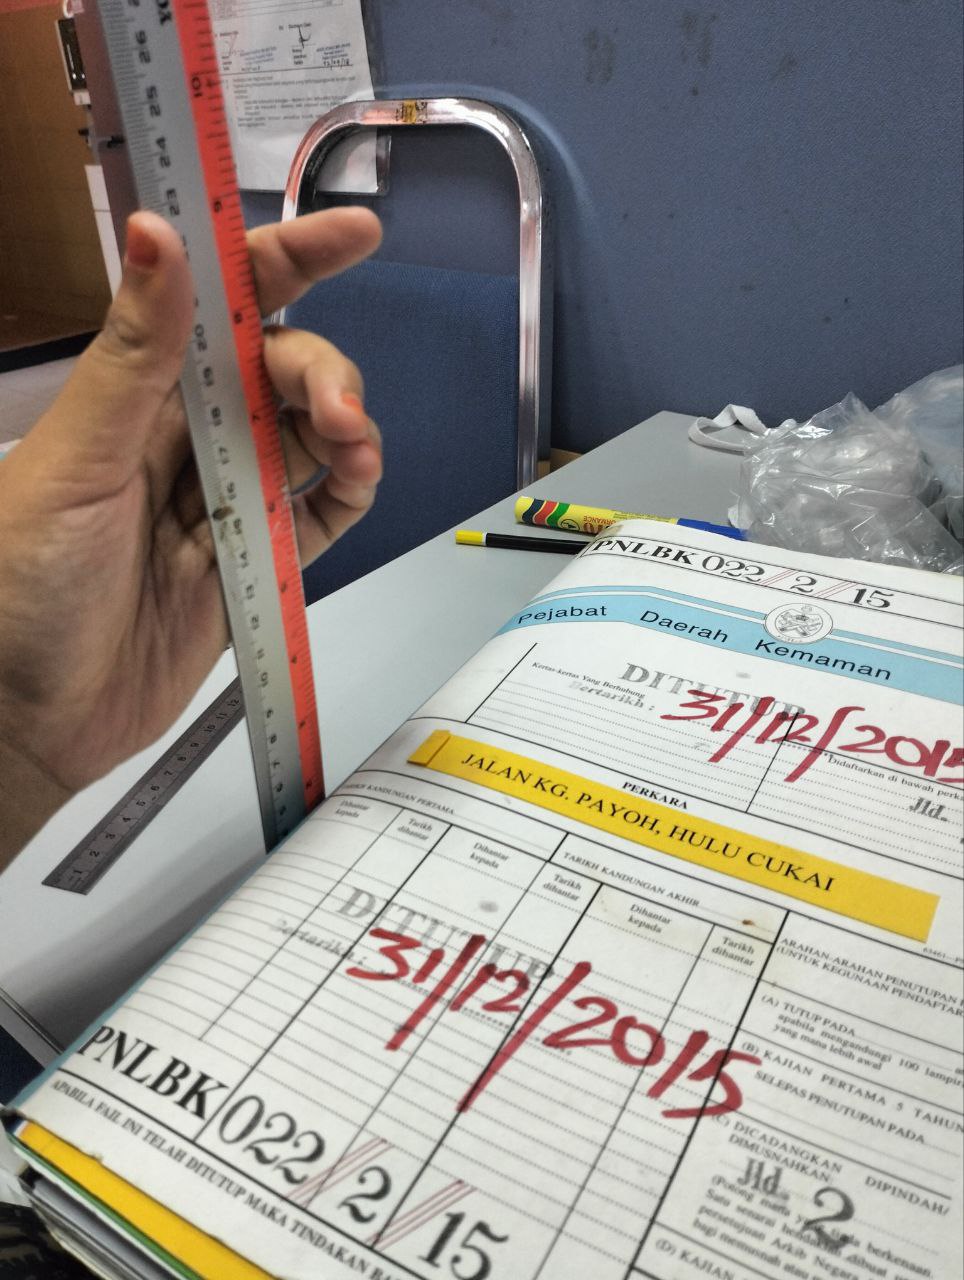 PNLBK 022/2/15
Pejabat Daerah Kemaman
Kertas-kertas Yang Berhubung
DITUTUP
Bertarikh :
31/12/2015
Didaftarkan di bawah perka
Jld.
PERKARA
JALAN KG. PAYOH, HULU CUKAI
KANDUNGAN PERTAMA
TARIKH KANDUNGAN AKHIR
Dihantar kepada
Tarikh dihantar
Dihantar kepada
Tarikh dihantar
Dihantar kepada
Tarikh dihantar
DITUTUP
Bertarikh :
31/12/2015
ARAHAN-ARAHAN PENUTUPAN
(UNTUK KEGUNAAN PENDAFTAR
(A) TUTUP PADA
apabila mengandungi 100 lampir
yang mana lebih awal
(B) KAJIAN PERTAMA 5 TAHUN
SELEPAS PENUTUPAN PADA
(C) DICADANGKAN DIPINDAH/
DIMUSNAHKAN
Jld. 2
(Potong mana yang tiada berkenaan
Satu senarai hendaklah dibuat
persetujuan Arkib Negar
bagi memusnah atau
(D) KAJIAN
PNLBK 022/2/15
APABILA FAIL INI TELAH DITUTUP MAKA TINDAKAN BA
10
9
8
7
6
5
4
26
25
24
23
20
19
18
17
16
14
13
12
11
10
9
8
7
6
1 2 3 4 5 6 7 8 9 10 11 12